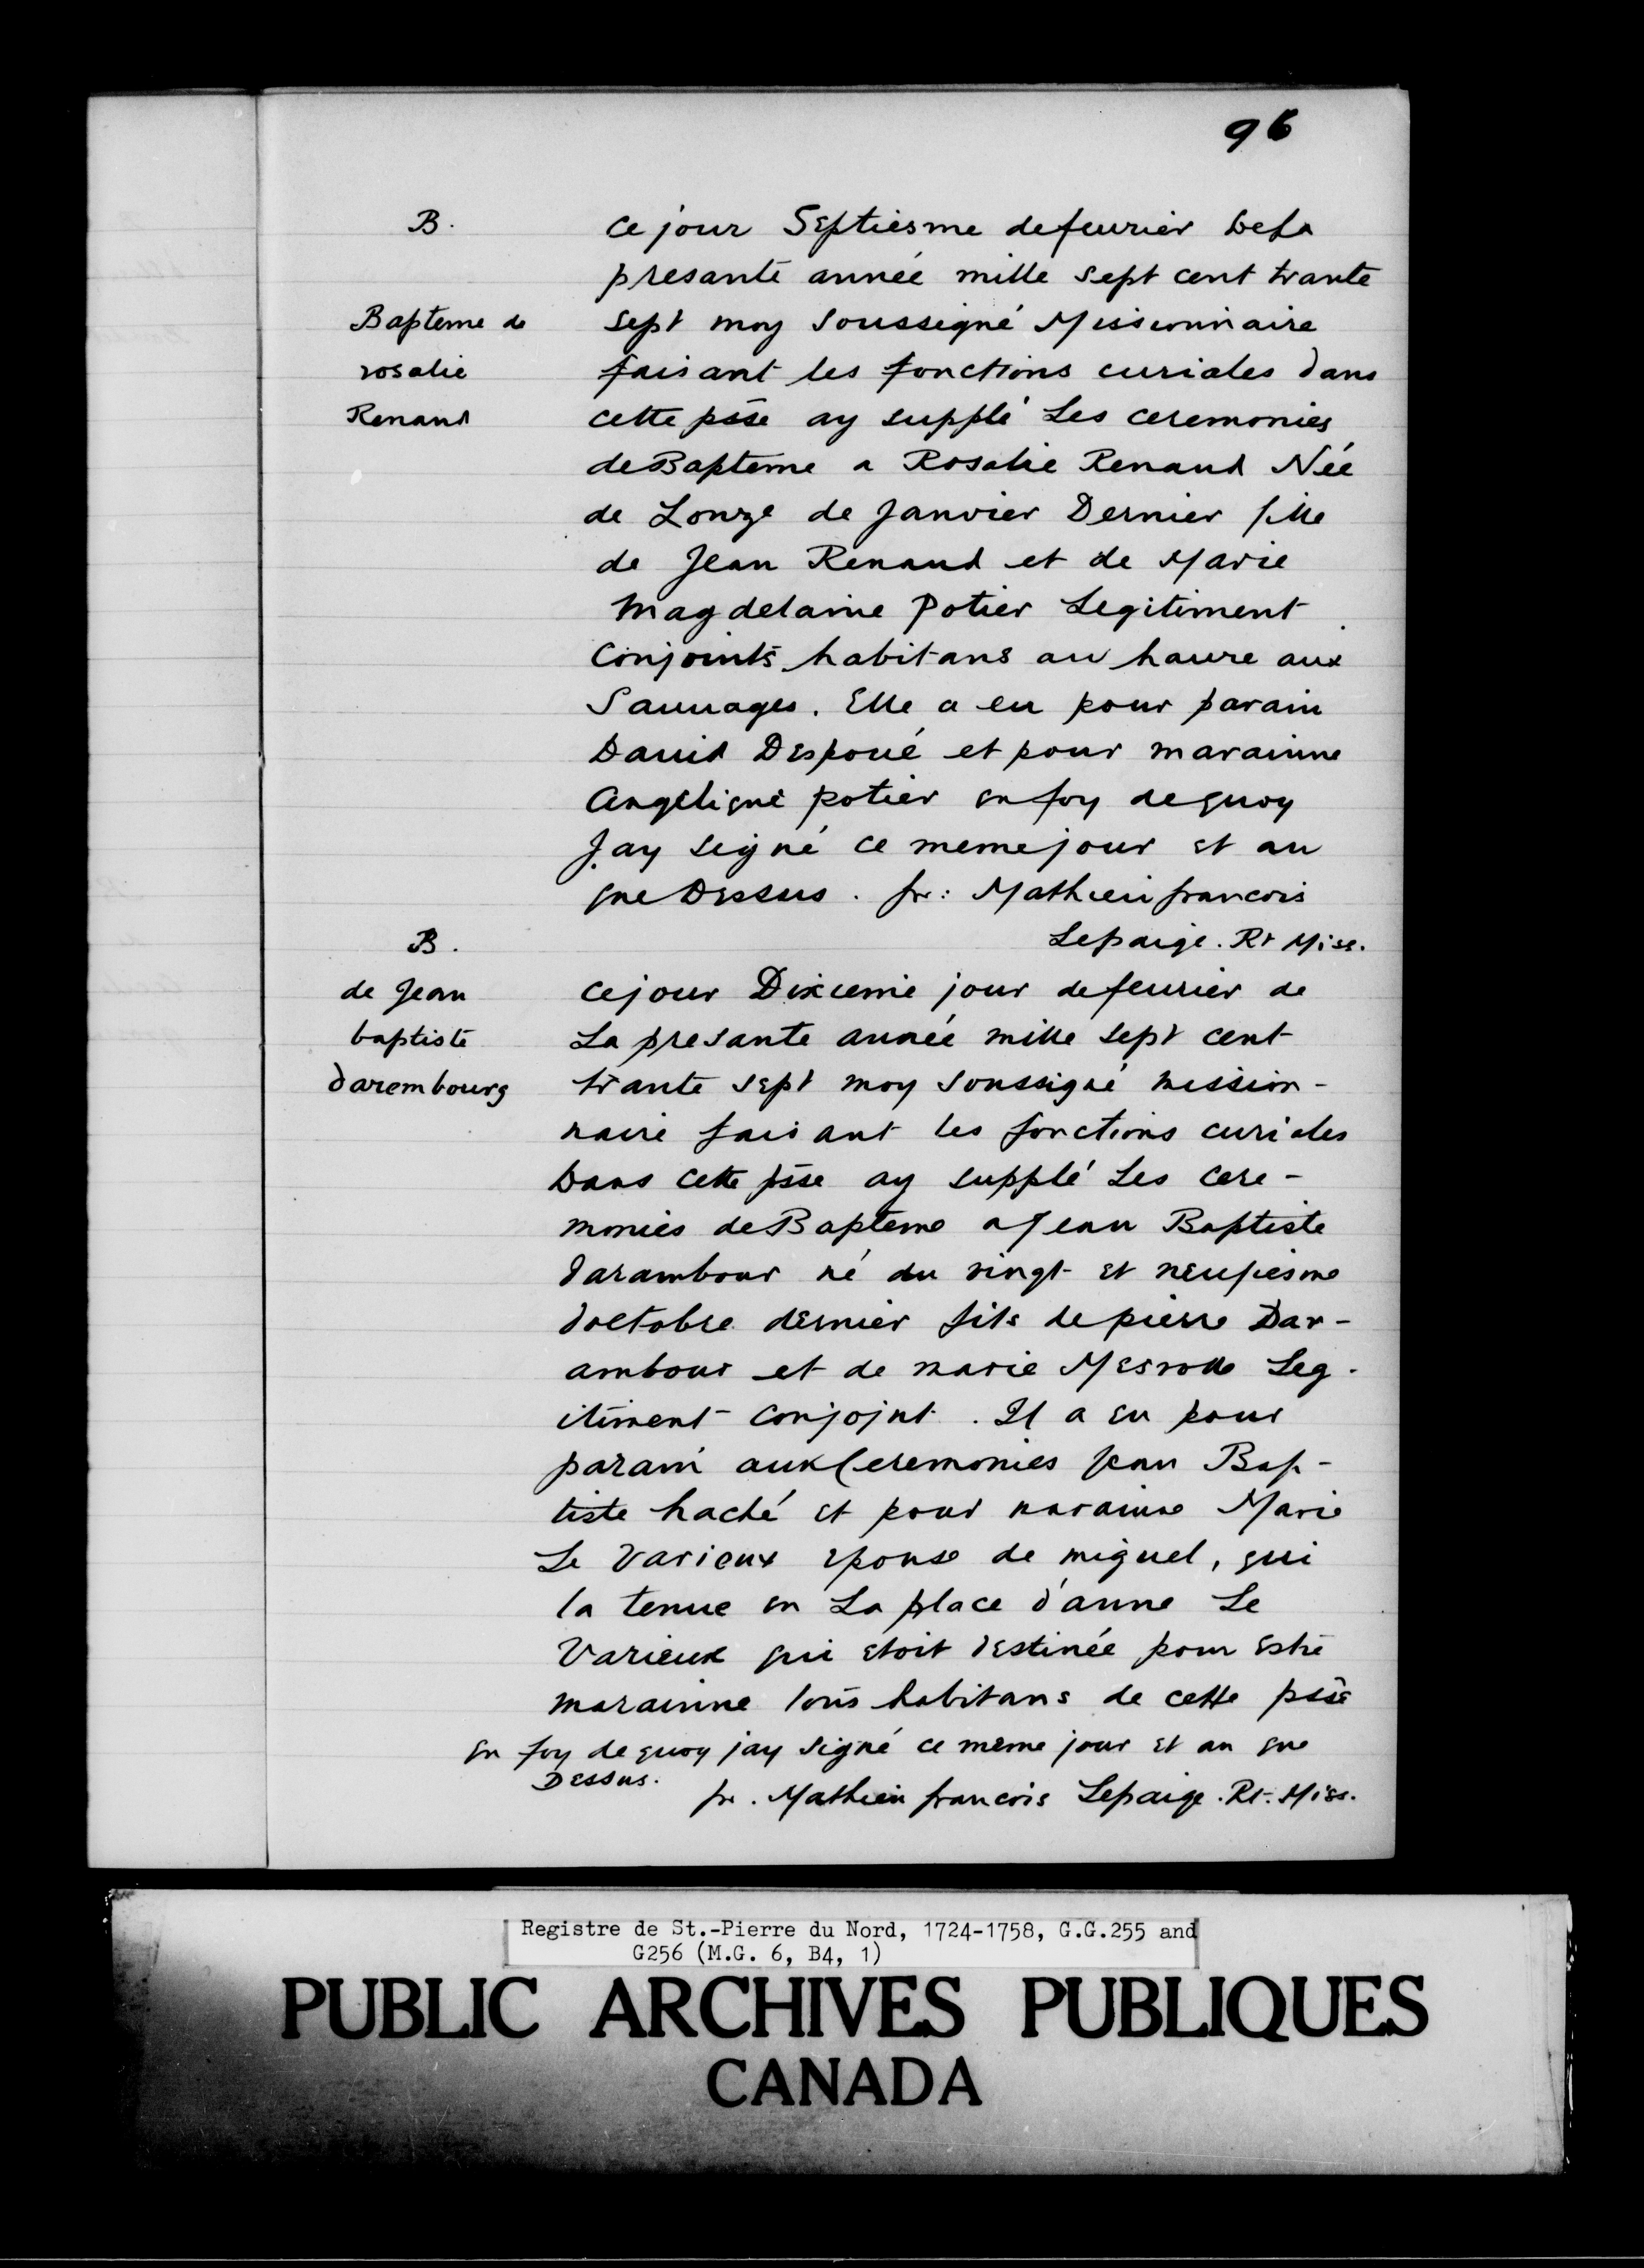 96
B.
ce jour Septiesme defeurier dela
presante année mille sept cent trante
Bapteme de
sept moy soussigné Missionnaire
rosalie
faisant les fonctions curiales dans
Renaud
cette psse ay supplé Les ceremonies
deBapteme a Rosalie Renaud Née
de Lonze de Janvier Dernier fille
de Jean Renaud et de Marie
Magdelaine Potier Legitiment
Conjoints habitans au haure aux
Sauuages. Elle a eu pour parain
Dauid Despoué et pour marainne
Angelique potier en foy dequoy
Jay signé ce memejour et an
que Dessus. fr: Mathieu francois
B.
Lepaige. Rt Miss.
de Jean
cejour Dixieme jour defeurier de
baptiste
La presante année mille sept cent
darembourg
trante sept moy soussigné mission-
naire faisant les fonctions curiales
Dans cette psse ay supplé Les cere-
monies deBapteme a Jean Baptiste
darambour né du vingt et neufiesme
doctobre dernier fils de pierre Dar-
ambour et de marie Mesrolle Leg-
itiment conjojnt. Il a eu pour
parain aux Ceremonies Jean Bap-
tiste haché et pour marainne Marie
Le Varieux epouse de miguel, qui
la tenue en La place d'anne Le
Varieux qui etoit destinée pour estre
marainne tous habitans de cette psse
en foy dequoy jay signé ce meme jour et an que
Dessus.
fr. Mathieu francois Lepaige. Rt. Miss.
Registre de St.-Pierre du Nord, 1724-1758, G.G.255 and
G256 (M.G. 6, B4, 1)
PUBLIC ARCHIVES PUBLIQUES
CANADA